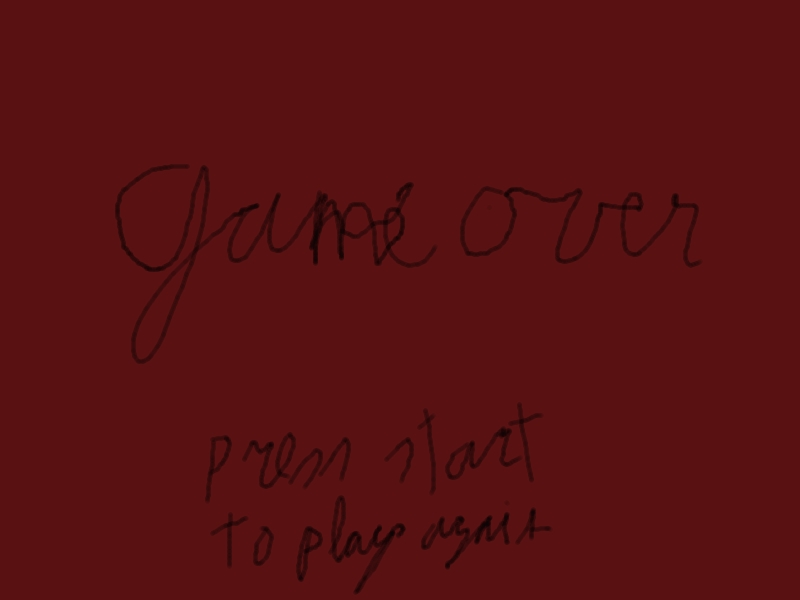 Game over
press start
to play again